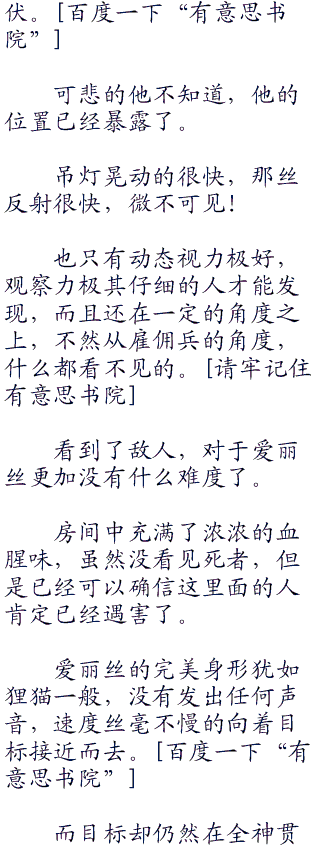 伏。[百度一下“有意思书
院”]
可悲的他不知道，他的
位置已经暴露了。
吊灯晃动的很快，那丝
反射很快，微不可见！
也只有动态视力极好，
观察力极其仔细的人才能发
现，而且还在一定的角度之
上，不然从雇佣兵的角度，
什么都看不见的。[请牢记住
有意思书院]
看到了敌人，对于爱丽
丝更加没有什么难度了。
房间中充满了浓浓的血
腥味，虽然没看见死者，但
是已经可以确信这里面的人
肯定已经遇害了。
爱丽丝的完美身形犹如
狸猫一般，没有发出任何声
音，速度丝毫不慢的向着目
标接近而去。[百度一下“有
意思书院”]
而目标却仍然在全神贯